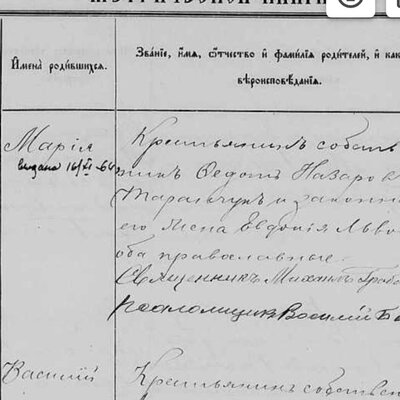 Имена родившихся.
Званіе, имя, отчество и фамилія родителей, и как
вѣроисповѣданія.
Марія
видано 16/XI-66
Крестьянинъ собств
никъ Ѳедотъ Назаров
Таранчукъ и законн
его жена Евдокія Льво
оба православные.
Священникъ Михаилъ Грабо
Псаломщикъ Василій Б
Василій
Крестьянинъ собствен